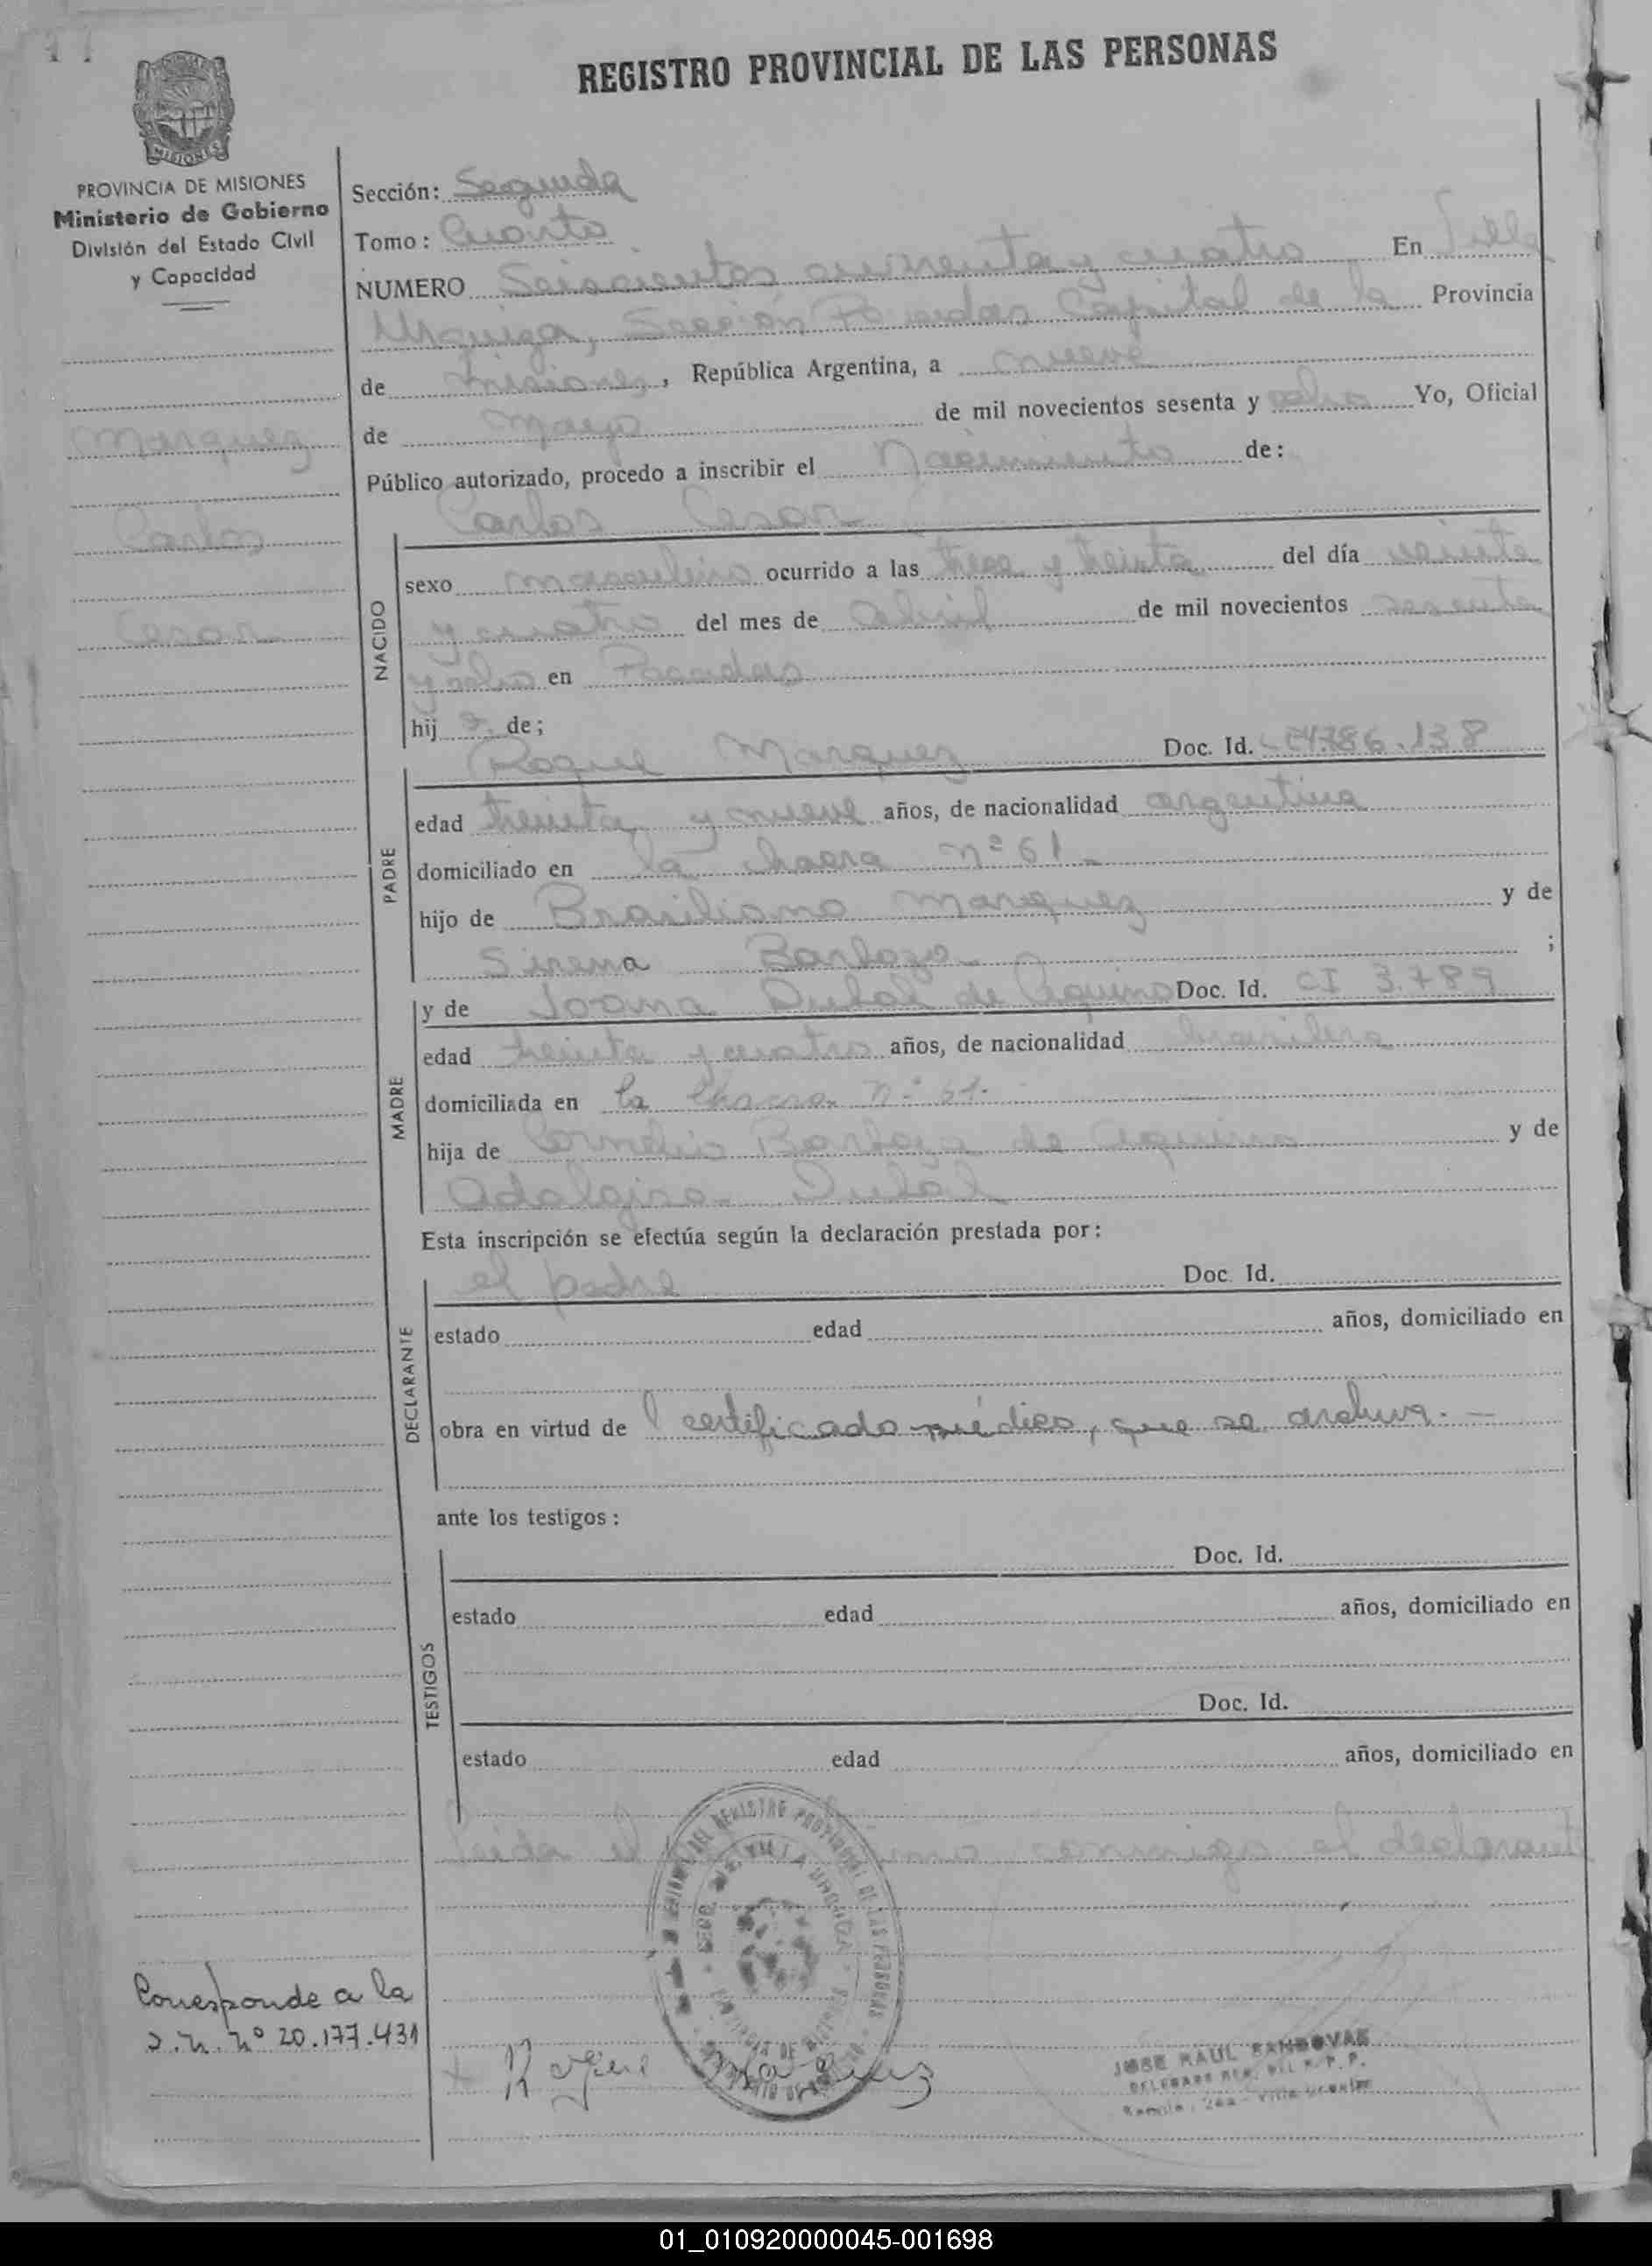 REGISTRO PROVINCIAL DE LAS PERSONAS
MISIONES
PROVINCIA DE MISIONES
Ministerio de Gobierno
División del Estado Civil
y Capacidad
Marquez
Carlos
Cesar
Sección: Segunda
Tomo: Cuarto
NUMERO Seiscientos cuarenta y cuatro En Villa
Urquiza, Sección Posadas Capital de la Provincia
de Misiones, República Argentina, a nueve
de Mayo de mil novecientos sesenta y ocho Yo, Oficial
Público autorizado, procedo a inscribir el Nacimiento de:
Carlos Cesar
NACIDO
sexo masculino ocurrido a las trece y treinta del día veinte
y cuatro del mes de Abril de mil novecientos sesenta
y ocho en Posadas
hij o de;
Roque Marquez Doc. Id. 786.138
PADRE
edad treinta y nueve años, de nacionalidad argentina
domiciliado en la chacra nº 61-
hijo de Brasiliano Marquez y de
Sirena Barboza ;
MADRE
y de Joana Dubal de Aquino Doc. Id. CI 3.789
edad treinta y cuatro años, de nacionalidad brasilera
domiciliada en la Chacra nº 61.
hija de Cornelio Barboza de Aquino y de
Adalgisa Dubál
Esta inscripción se efectúa según la declaración prestada por:
DECLARANTE
el padre Doc. Id.
estado edad años, domiciliado en
obra en virtud de certificado médico, que se archiva. -
ante los testigos:
TESTIGOS
Doc. Id.
estado edad años, domiciliado en
Doc. Id.
estado edad años, domiciliado en
Leida el conmigo el declarante
REGISTRO PROVINCIAL DE LAS PERSONAS
VILLA URQUIZA
Corresponde a la
nº 20.177.431
Roque Marquez
JOSE RAUL SANDOVAL
01_010920000045-001698